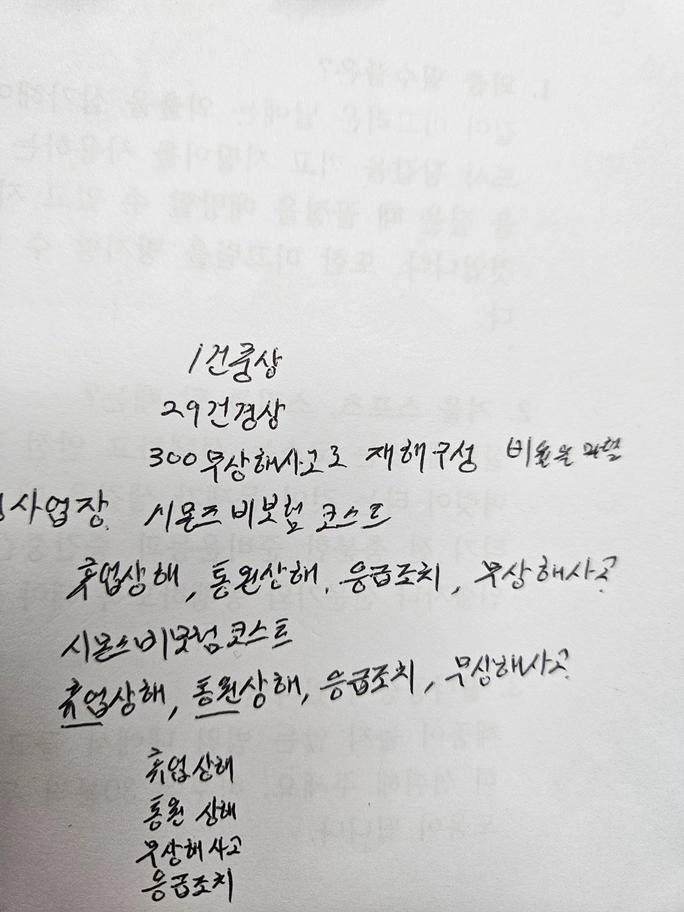 1건중상
29건경상
300무상해사고로 재해구성 비율을
사업장. 시몬즈 비보험 코스트
휴업상해, 통원상해, 응급조치, 무상해사고
시몬스비보험코스트
휴업상해, 통원상해, 응급조치, 무상해사고
휴업상해
통원 상해
무상해사고
응급조치